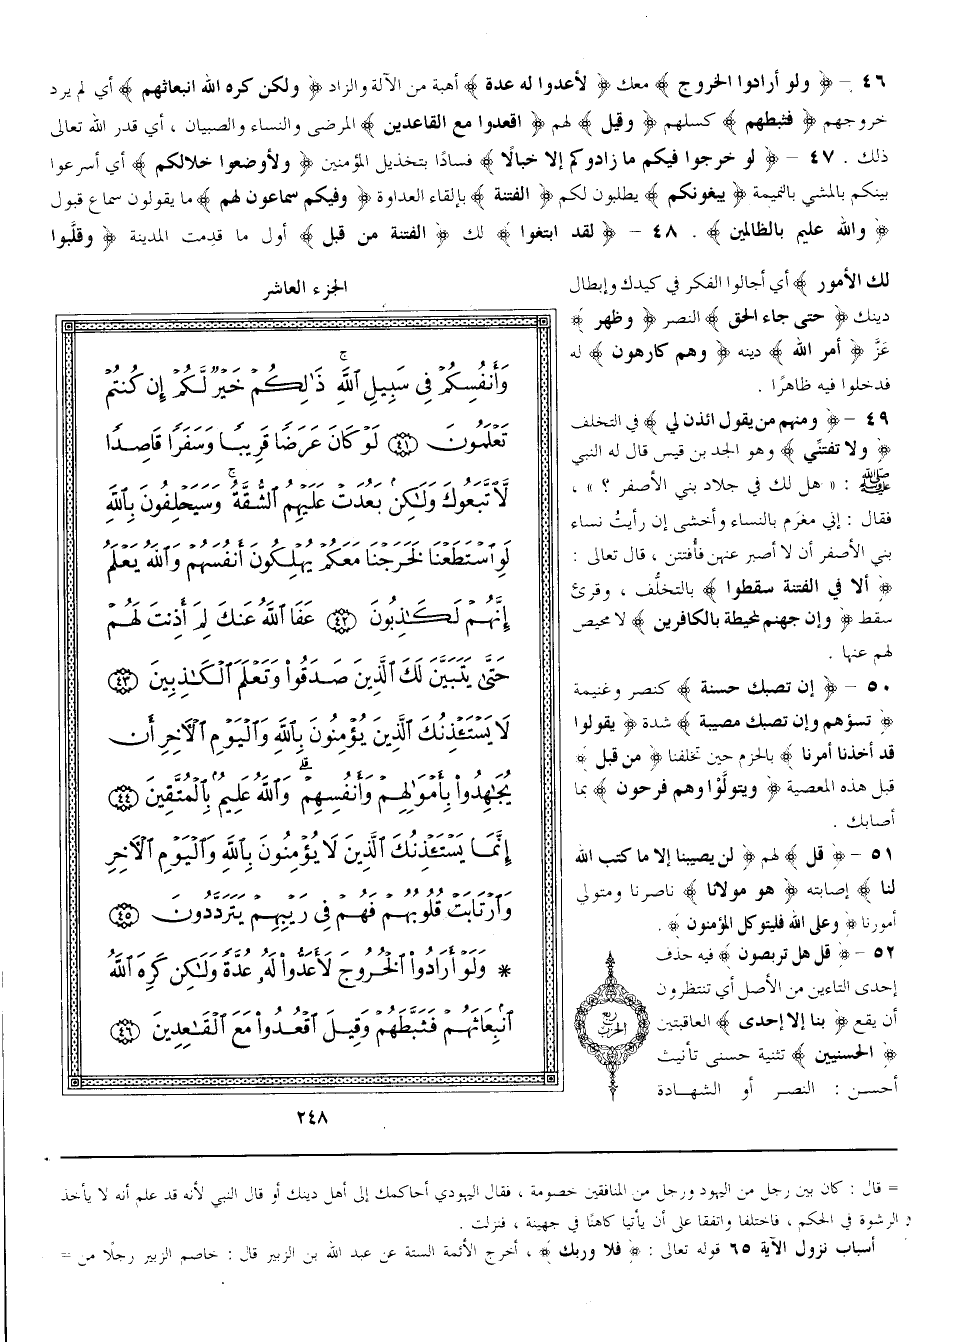 ٤٦ – ﴿ ولو أرادوا الخروج ﴾ معك ﴿ لأعدوا له عدة ﴾ أهبة من الآلة والزاد ﴿ ولكن كره الله انبعاثهم ﴾ أي لم يرد
خروجهم ﴿ فثبطهم ﴾ كسلهم ﴿ وقيل ﴾ لهم ﴿ اقعدوا مع القاعدين ﴾ المرضى والنساء والصبيان ، أي قدر الله تعالى
ذلك . ٤٧ – ﴿ لو خرجوا فيكم ما زادوكم إلا خبالًا ﴾ فسادًا بتخذيل المؤمنين ﴿ ولأوضعوا خلالكم ﴾ أي أسرعوا
بينكم بالمشي بالنميمة ﴿ يبغونكم ﴾ يطلبون لكم ﴿ الفتنة ﴾ بإلقاء العداوة ﴿ وفيكم سماعون لهم ﴾ ما يقولون سماع قبول
﴿ والله عليم بالظالمين ﴾ . ٤٨ – ﴿ لقد ابتغوا ﴾ لك ﴿ الفتنة من قبل ﴾ أول ما قدمت المدينة ﴿ وقلَّبوا
لك الأمور ﴾ أي أجالوا الفكر في كيدك وإبطال
دينك ﴿ حتى جاء الحق ﴾ النصر ﴿ وظهر ﴾
عَزَّ ﴿ أمر الله ﴾ دينه ﴿ وهم كارهون ﴾ له
فدخلوا فيه ظاهرًا .
٤٩ – ﴿ ومنهم من يقول ائذن لي ﴾ في التخلف
﴿ ولا تفتنِّي ﴾ وهو الجد بن قيس قال له النبي
ﷺ : « هل لك في جلاد بني الأصفر ؟ » ،
فقال : إني مغرَم بالنساء وأخشى إن رأيتُ نساء
بني الأصفر أن لا أصبر عنهن فأُفتتن ، قال تعالى :
﴿ ألا في الفتنة سقطوا ﴾ بالتخلُّف ، وقرئ
سقط ﴿ وإن جهنم لمحيطة بالكافرين ﴾ لا محيص
لهم عنها .
٥٠ – ﴿ إن تصبك حسنة ﴾ كنصر وغنيمة
﴿ تسؤهم وإن تصبك مصيبة ﴾ شدة ﴿ يقولوا
قد أخذنا أمرنا ﴾ بالحزم حين تخلفنا ﴿ من قبل ﴾
قبل هذه المعصية ﴿ ويتولَّوْا وهم فرحون ﴾ بما
أصابك .
٥١ – ﴿ قل ﴾ لهم ﴿ لن يصيبنا إلا ما كتب الله
لنا ﴾ إصابته ﴿ هو مولانا ﴾ ناصرنا ومتولي
أمورنا ﴿ وعلى الله فليتوكل المؤمنون ﴾ .
٥٢ – ﴿ قل هل تربصون ﴾ فيه حذف
إحدى التاءين من الأصل أي تنتظرون
أن يقع ﴿ بنا إلا إحدى ﴾ العاقبتين
﴿ الحسنيين ﴾ تثنية حسنى تأنيث
أحسن : النصر أو الشهادة
ربع
الحزب
الجزء العاشر
وَأَنفُسِكُمْ فِي سَبِيلِ ٱللَّهِ ۚ ذَٰلِكُمْ خَيْرٌ لَّكُمْ إِن كُنتُمْ
تَعْلَمُونَ ﴿٤١﴾ لَوْ كَانَ عَرَضًا قَرِيبًا وَسَفَرًا قَاصِدًا
لَّاتَّبَعُوكَ وَلَٰكِنۢ بَعُدَتْ عَلَيْهِمُ ٱلشُّقَّةُ ۚ وَسَيَحْلِفُونَ بِٱللَّهِ
لَوِ ٱسْتَطَعْنَا لَخَرَجْنَا مَعَكُمْ يُهْلِكُونَ أَنفُسَهُمْ وَٱللَّهُ يَعْلَمُ
إِنَّهُمْ لَكَٰذِبُونَ ﴿٤٢﴾ عَفَا ٱللَّهُ عَنكَ لِمَ أَذِنتَ لَهُمْ
حَتَّىٰ يَتَبَيَّنَ لَكَ ٱلَّذِينَ صَدَقُوا۟ وَتَعْلَمَ ٱلْكَٰذِبِينَ ﴿٤٣﴾
لَا يَسْتَـْٔذِنُكَ ٱلَّذِينَ يُؤْمِنُونَ بِٱللَّهِ وَٱلْيَوْمِ ٱلْـَٔاخِرِ أَن
يُجَٰهِدُوا۟ بِأَمْوَٰلِهِمْ وَأَنفُسِهِمْ ۗ وَٱللَّهُ عَلِيمٌۢ بِٱلْمُتَّقِينَ ﴿٤٤﴾
إِنَّمَا يَسْتَـْٔذِنُكَ ٱلَّذِينَ لَا يُؤْمِنُونَ بِٱللَّهِ وَٱلْيَوْمِ ٱلْـَٔاخِرِ
وَٱرْتَابَتْ قُلُوبُهُمْ فَهُمْ فِي رَيْبِهِمْ يَتَرَدَّدُونَ ﴿٤٥﴾
* وَلَوْ أَرَادُوا۟ ٱلْخُرُوجَ لَأَعَدُّوا۟ لَهُۥ عُدَّةً وَلَٰكِن كَرِهَ ٱللَّهُ
ٱنۢبِعَاثَهُمْ فَثَبَّطَهُمْ وَقِيلَ ٱقْعُدُوا۟ مَعَ ٱلْقَٰعِدِينَ ﴿٤٦﴾
٢٤٨
= قال : كان بين رجل من اليهود ورجل من المنافقين خصومة ، فقال اليهودي أحاكمك إلى أهل دينك أو قال النبي لأنه قد علم أنه لا يأخذ
الرشوة في الحكم ، فاختلفا واتفقا على أن يأتيا كاهنًا في جهينة ، فنزلت .
أسباب نزول الآية ٦٥ قوله تعالى : ﴿ فلا وربك ﴾ ، أخرج الأئمة الستة عن عبد الله بن الزبير قال : خاصم الزبير رجلًا من =